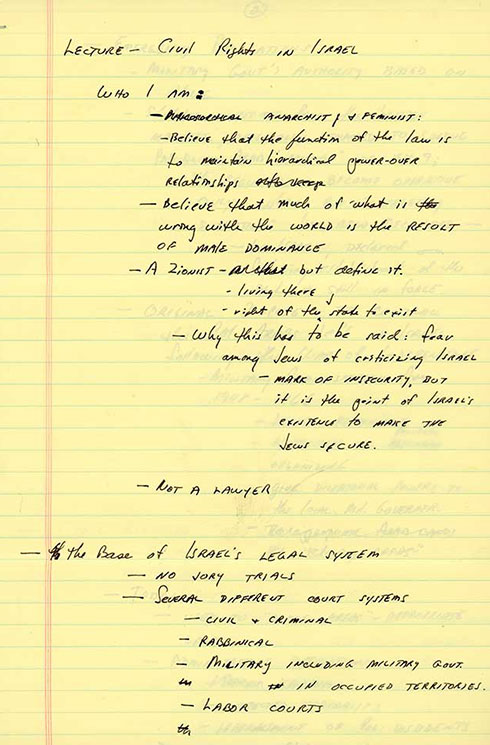 LECTURE — CIVIL RIGHTS IN ISRAEL
WHO I AM:
— ANARCHIST & FEMINIST:
- Believe that the function of the law is
to maintain hierarchical power-over
relationships
— Believe that much of what is
wrong with the WORLD is the RESULT
OF MALE DOMINANCE
— A ZIONIST — but define it.
- living there
- right of the state to exist
— Why this has to be said: fear
among Jews of criticizing ISRAEL
— MARK OF INSECURITY, BUT
it is the point of ISRAEL'S
EXISTENCE TO MAKE THE
JEWS SECURE.
— NOT A LAWYER
— the Base of ISRAEL'S LEGAL SYSTEM
— NO JURY TRIALS
— SEVERAL DIFFERENT COURT SYSTEMS
— CIVIL & CRIMINAL
— RABBINICAL
— MILITARY INCLUDING MILITARY GOVT.
IN OCCUPIED TERRITORIES.
— LABOR COURTS